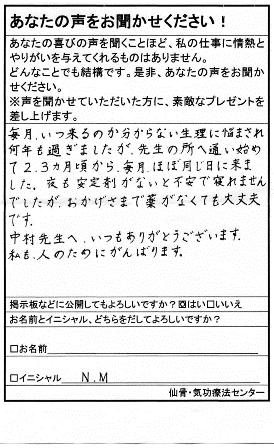 あなたの声をお聞かせください！
あなたの喜びの声を聞くことほど、私の仕事に情熱と
やりがいを与えてくれるものはありません。
どんなことでも結構です。是非、あなたの声をお聞か
せください。
※声を聞かせていただいた方に、素敵なプレゼントを
差し上げます。
毎月、いつ来るのか分からない生理に悩まされ
何年も過ぎましたが、先生の所へ通い始め
て2.3ヵ月頃から、毎月、ほぼ同じ日に来ま
した。夜も安定剤がないと不安で寝れません
でしたが、おかげさまで薬がなくても大丈夫
です。
中村先生へ、いつもありがとうございます。
私も、人のためにがんばります。
掲示板などに公開してもよろしいですか？☒はい□いいえ
お名前とイニシャル、どちらをだしてよろしいですか？
□お名前
□イニシャル N.M
仙骨・気功療法センター